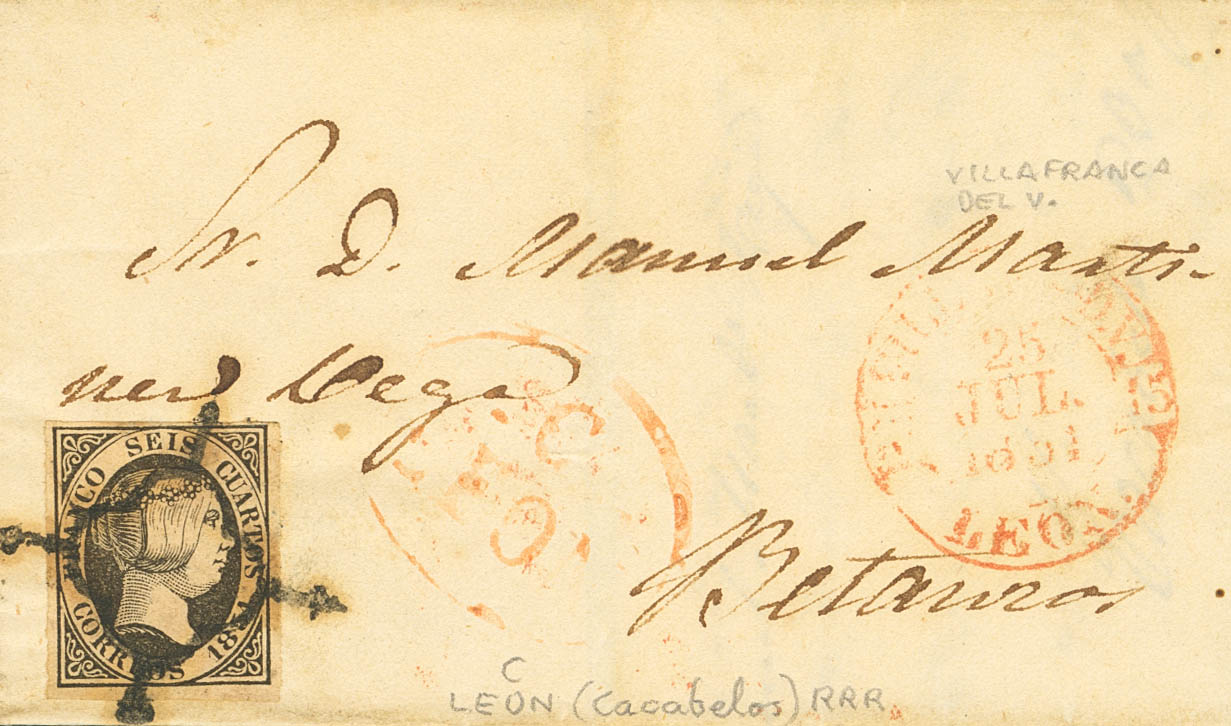 VILLAFRANCA
DEL V.
Sr. D. Manuel Marti-
nez Vega
25
JUL.
1851
LEON.
Betanzos
FRANCO SEIS CUARTOS
CORREOS 1851
C
LEÓN (Cacabelos) RRR